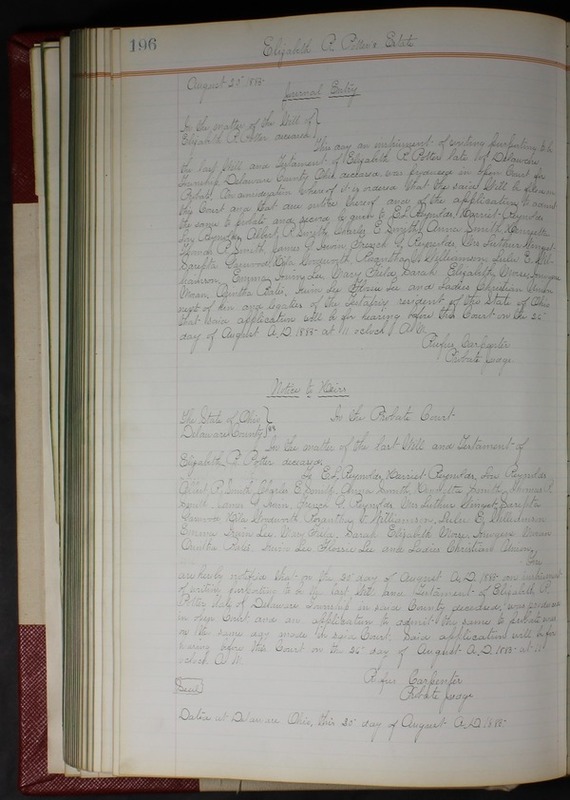 196
Elizabeth R. Potter's Estate
August 20" 1885
Journal Entry
In the matter of the Will of
Elizabeth R. Potter deceased
This day an instrument of writing purporting to be
the last Will and Testament of Elizabeth R. Potter late of Delaware
Township Delaware County Ohio deceased was produced in open Court for
Probate. On consideration whereof it is ordered that the said Will be filed in
the Court and that due notice thereof and of the application to admit
the same to probate and record be given to E.L. Reynolds Harriet Reynolds
Reynolds Albert R. Smith Charles E. Smith Anna Smith Henrietta
Smith James G. French G. Reynolds Luther
Williamson E.
Emma Irwin Lee Mary Sarah Elizabeth
Irwin Lee Florrie Lee and Ladies Christian Union
next of kin and legatees of the Testatrix resident of the State of Ohio
that said application will be for hearing before this Court on the
day of August A.D. 1885 at 11 oclock A.M.
Rufus Carpenter
Probate Judge
Notice to Heirs
The State of Ohio
Delaware County ss
In the Probate Court
In the matter of the last Will and Testament of
Elizabeth R. Potter deceased
To E.L. Reynolds, Harriet Reynolds, Reynolds
Albert R. Smith Charles E. Smith Anna Smith, Smith
Smith James G. French G. Reynolds Luther
Williamson, E. Williamson
Emma Irwin Lee Mary Sarah Elizabeth
Irwin Lee Florrie Lee and Ladies Christian Union
You
are hereby notified that on the 20" day of August A.D. 1885 an instrument
of writing purporting to be the last Will and Testament of Elizabeth R.
Potter late of Delaware Township in said County deceased, was produced
in open Court and an application to admit the same to probate was
on the same day made in said Court. Said application will be for
hearing before this Court on the day of August A.D. 1885 at 11
oclock A.M.
Rufus Carpenter
Probate Judge
Seal
Dated at Delaware Ohio, this 20" day of August A.D. 1885